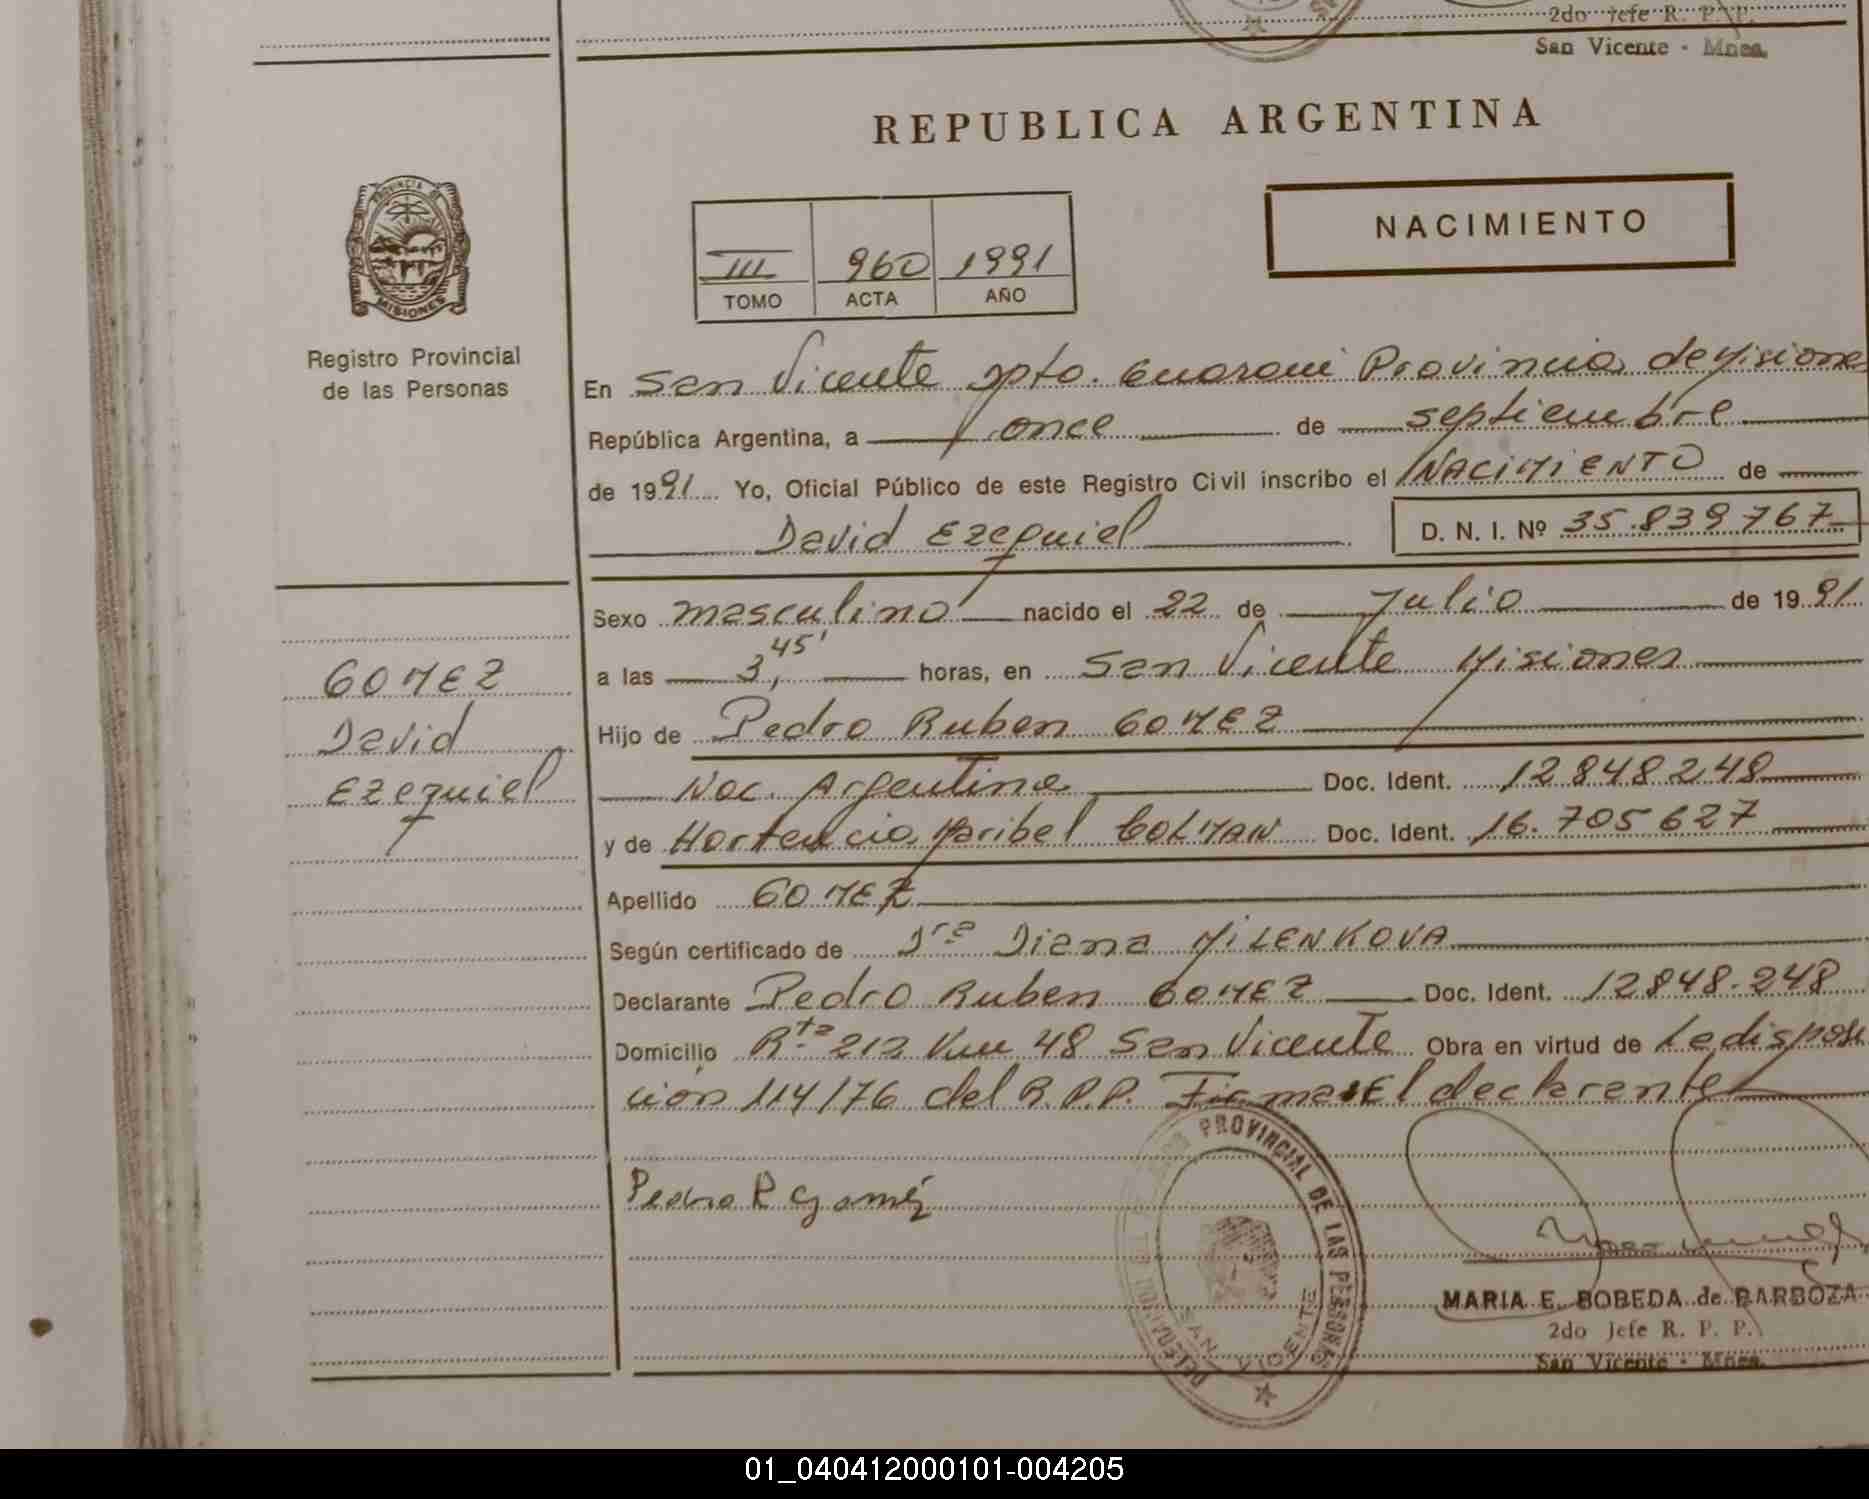 2do Jefe R. P. P.
San Vicente - Mnes.
REPUBLICA ARGENTINA
NACIMIENTO
III 960 1991
TOMO ACTA AÑO
PROVINCIA DE
MISIONES
Registro Provincial
de las Personas
En San Vicente Dpto. Guarani Provincia de Misiones
República Argentina, a once de septiembre
de 1991 Yo, Oficial Público de este Registro Civil inscribo el NACIMIENTO de
David Ezequiel D. N. I. Nº 35.839.767
Sexo masculino nacido el 22 de Julio de 1991
a las 3,45' horas, en San Vicente Misiones
Hijo de Pedro Ruben GOMEZ
Nac. Argentina Doc. Ident. 12848248
y de Hortencia Maribel GOLMAN Doc. Ident. 16.705627
Apellido GOMEZ
Según certificado de Dra Diana MILENKOVA
Declarante Pedro Ruben GOMEZ Doc. Ident. 12848.248
Domicilio Rta 212 Km 48 San Vicente Obra en virtud de La disposi
ción 114/76 del R.P.P. Firma el declarante
GOMEZ
David
Ezequiel
Pedro R Gomez
PROVINCIAL DE LAS PERSONAS
SAN VICENTE
MARIA E. BOBEDA de BARBOZA
2do Jefe R. P. P.
San Vicente - Mnes.
01_040412000101-004205